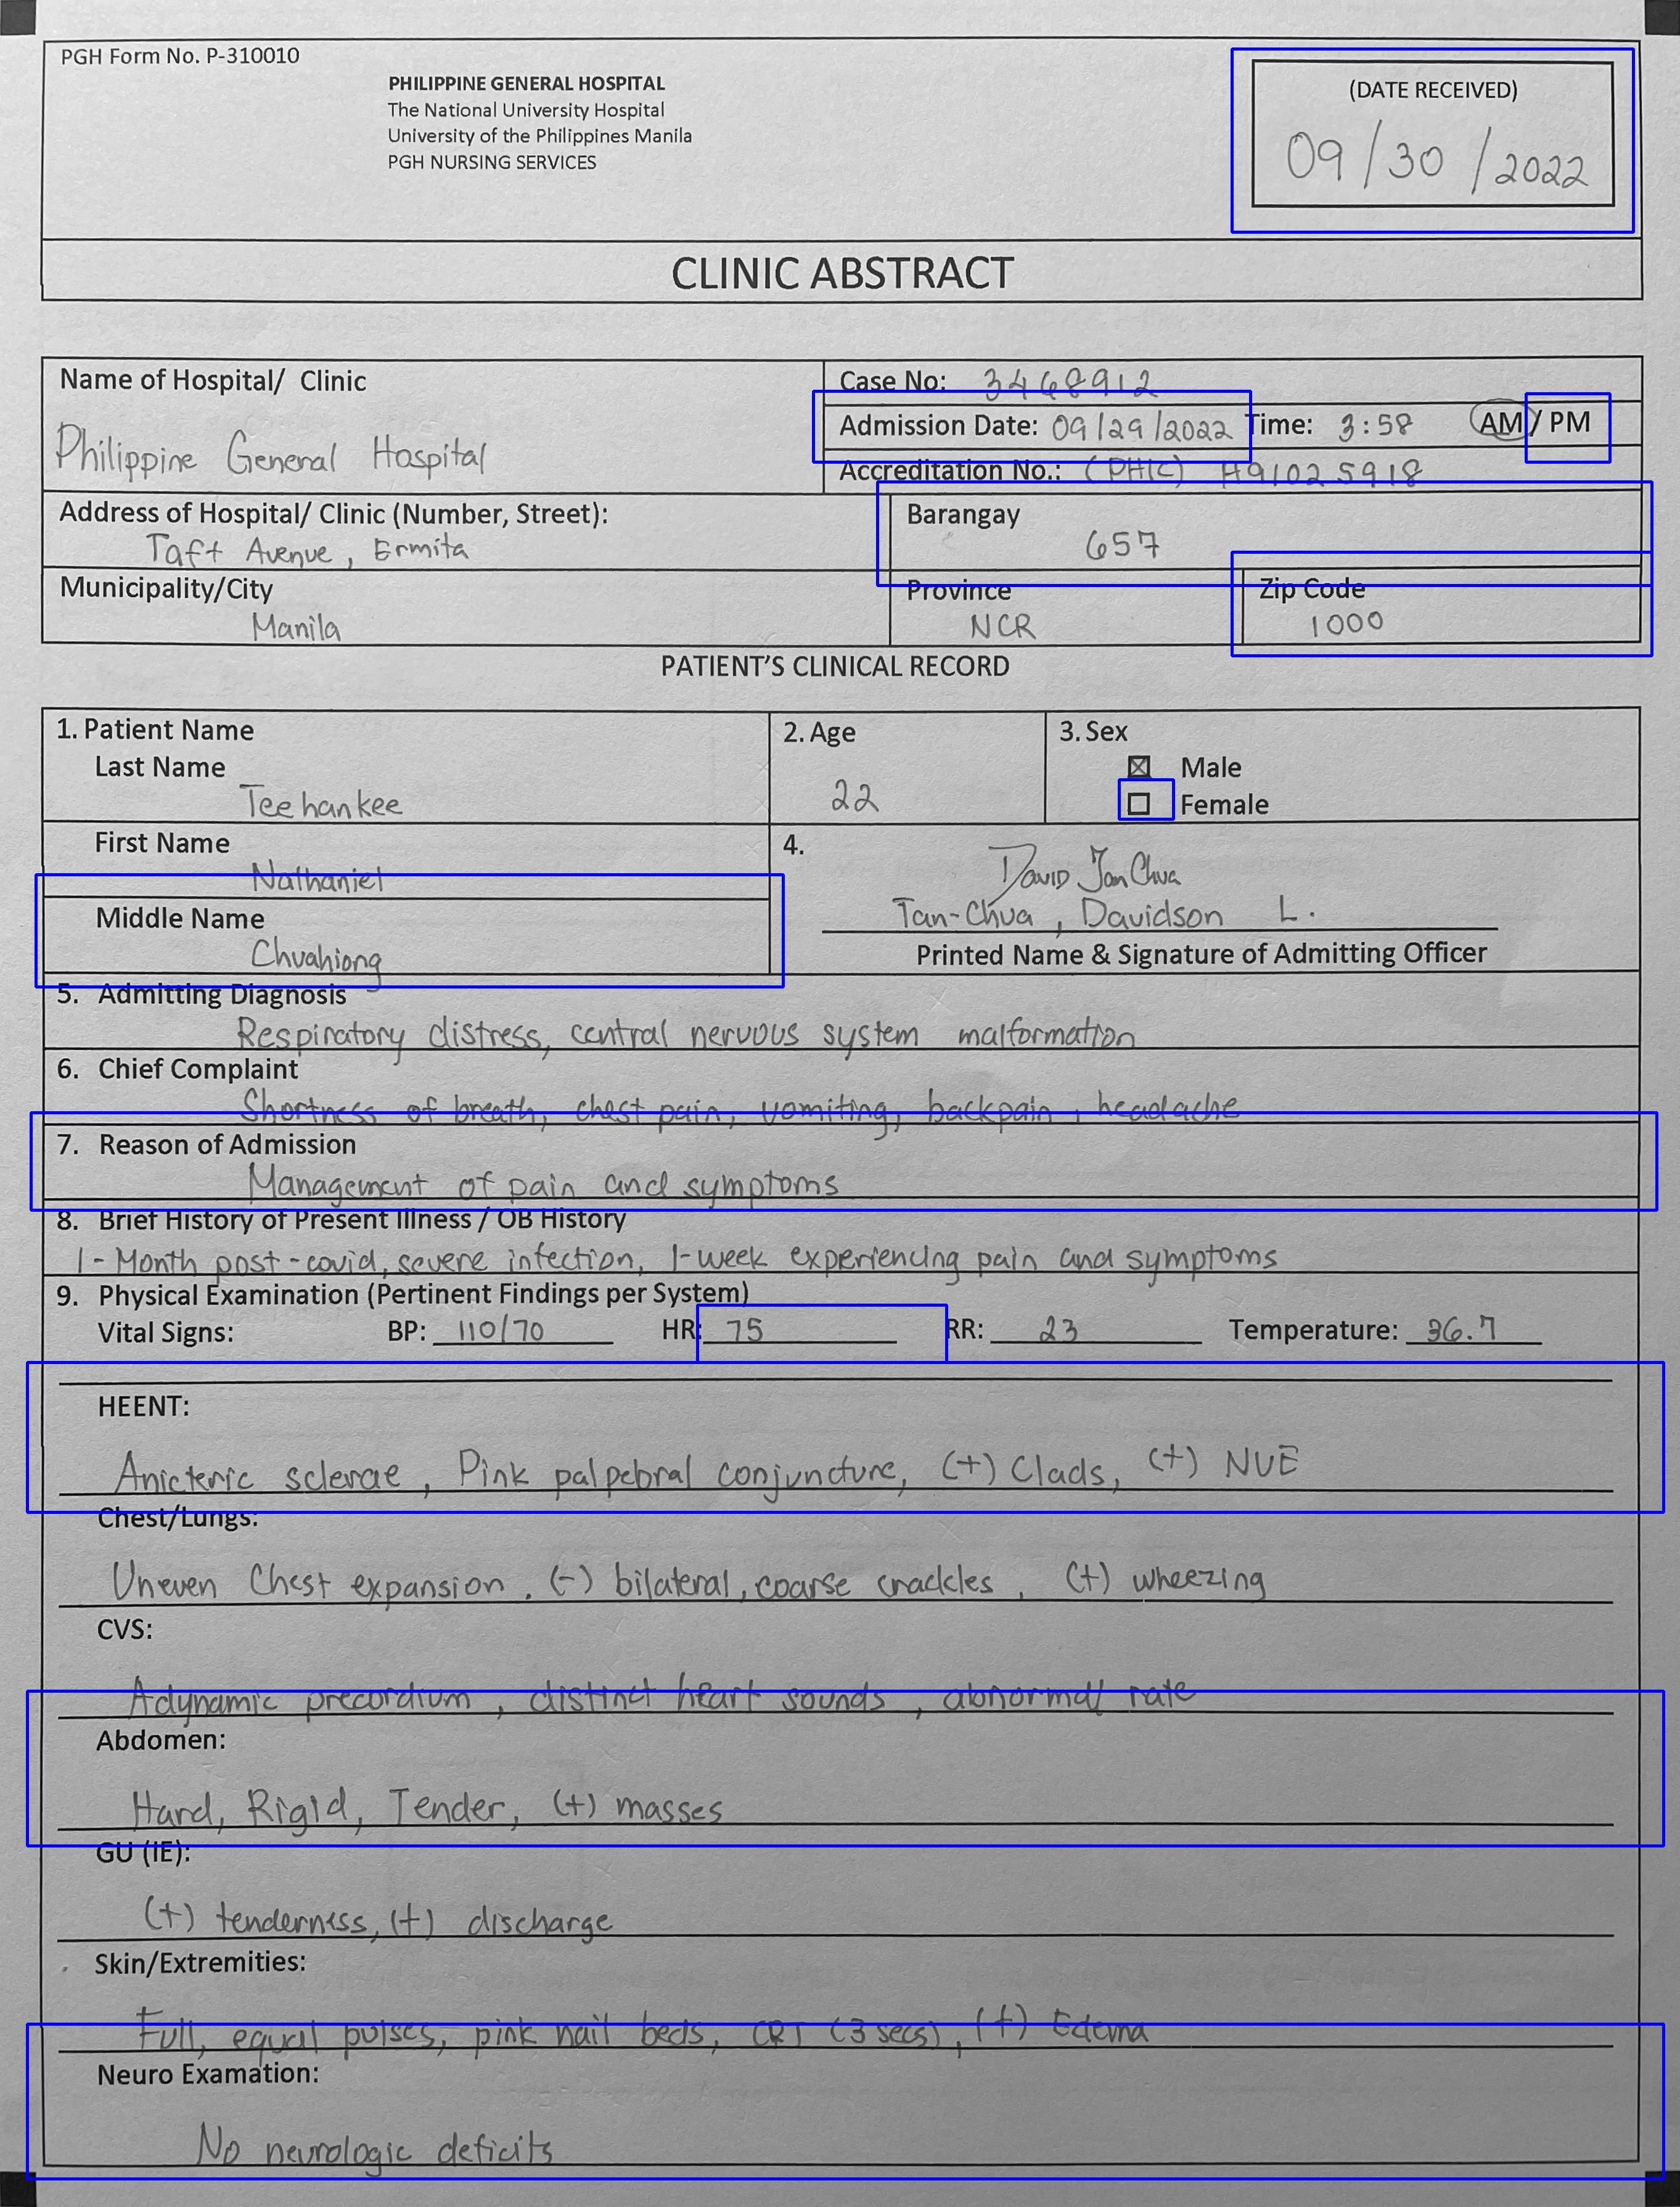 PGH Form No. P-310010
PHILIPPINE GENERAL HOSPITAL
The National University Hospital
University of the Philippines Manila
PGH NURSING SERVICES
(DATE RECEIVED)
09/30/2022
CLINIC ABSTRACT
Name of Hospital/ Clinic
Philippine General Hospital
Case No: 3468912
Admission Date: 09/29/2022 Time: 3:58 AM / PM
Accreditation No.: (PHIC) H91025918
Address of Hospital/ Clinic (Number, Street):
Taft Avenue, Ermita
Barangay
657
Municipality/City
Manila
Province
NCR
Zip Code
1000
PATIENT'S CLINICAL RECORD
1. Patient Name
Last Name
Teehankee
2. Age
22
3. Sex
Male
Female
First Name
Nathaniel
Middle Name
Chuahiong
4.
David Tan Chua
Tan-Chua, Davidson L.
Printed Name & Signature of Admitting Officer
5. Admitting Diagnosis
Respiratory distress, central nervous system malformation
6. Chief Complaint
Shortness of breath, chest pain, vomiting, backpain, headache
7. Reason of Admission
Management of pain and symptoms
8. Brief History of Present Illness / OB History
1-Month post-covid, severe infection, 1-week experiencing pain and symptoms
9. Physical Examination (Pertinent Findings per System)
Vital Signs: BP: 110/70 HR: 75 RR: 23 Temperature: 36.7
HEENT:
Anicteric sclerae, Pink palpebral conjuncture, (+) Clads, (+) NUE
Chest/Lungs:
Uneven Chest expansion, (-) bilateral, coarse crackles, (+) wheezing
CVS:
Adynamic precordium, distinct heart sounds, abnormal rate
Abdomen:
Hard, Rigid, Tender, (+) masses
GU (IE):
(+) tenderness, (+) discharge
Skin/Extremities:
Full, equal pulses, pink nail beds, CRT (3 secs), (+) Edema
Neuro Examation:
No neurologic deficits